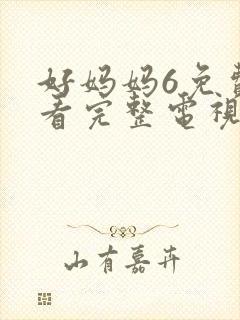 好妈妈6免费
看完整電視
山有嘉卉